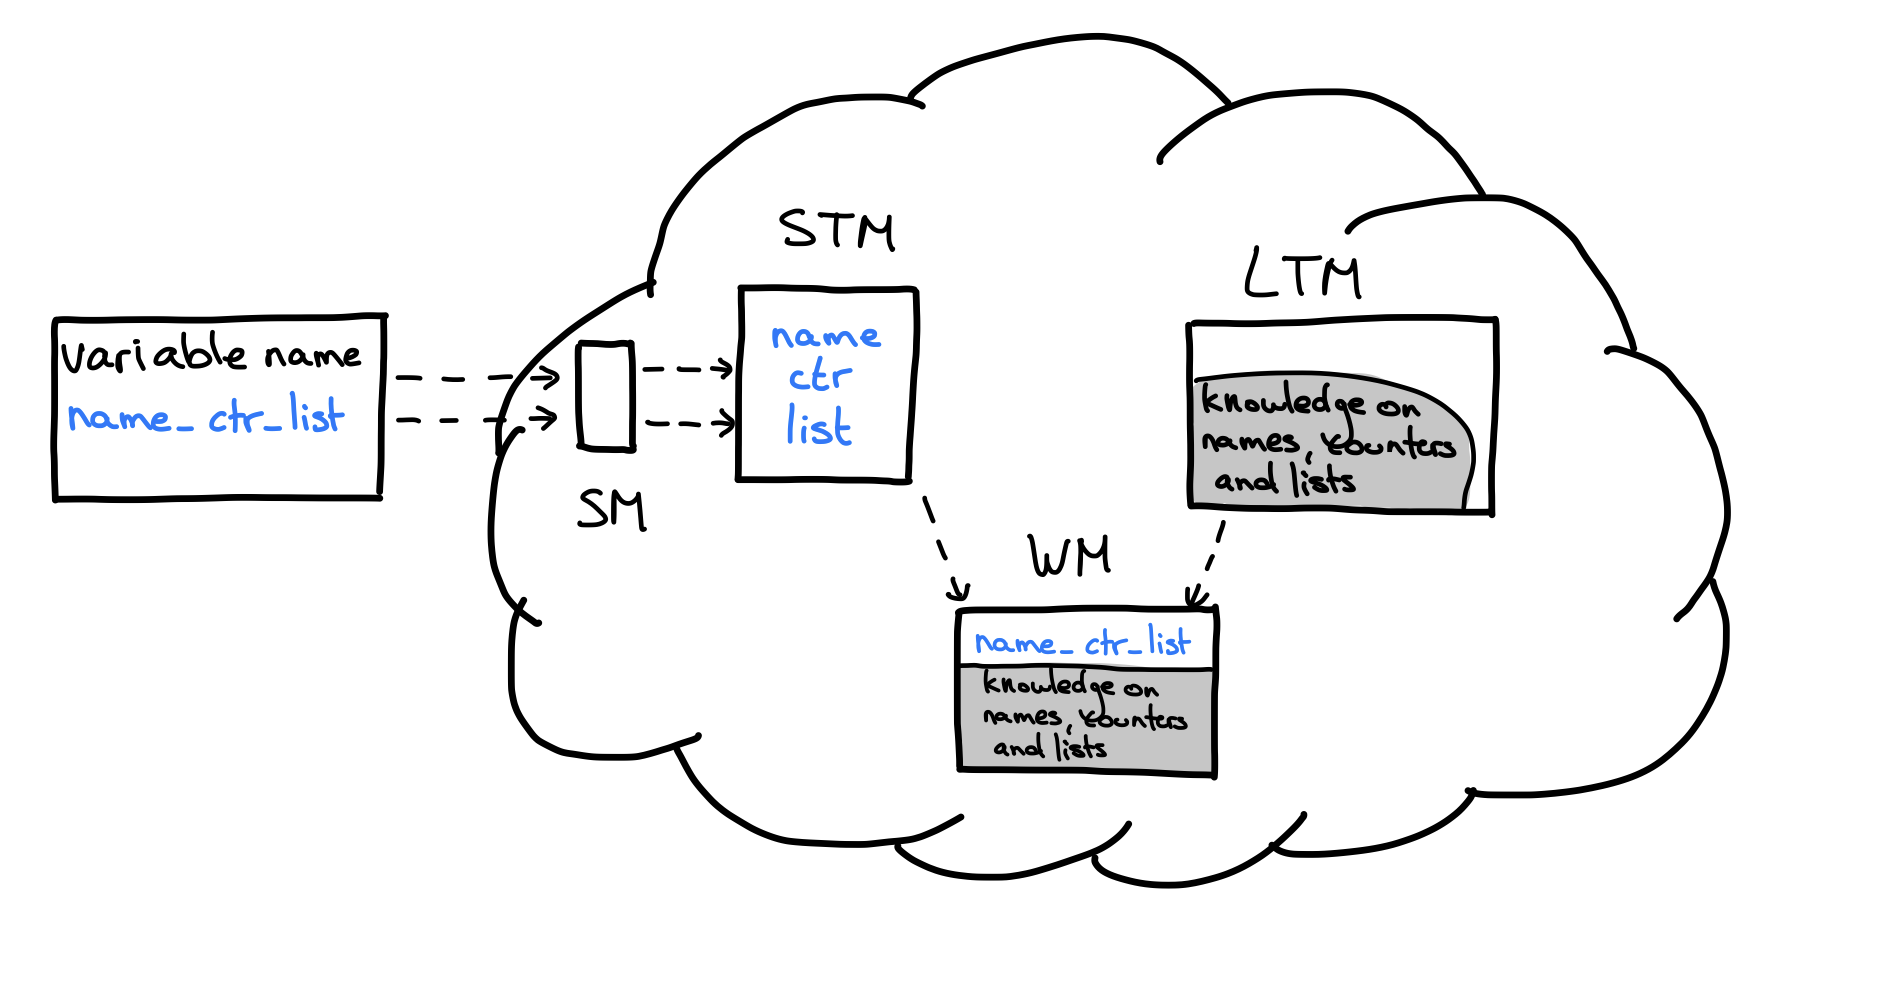 STM
LTM
variable name
name_ctr_list
name
ctr
list
SM
knowledge on
names, counters
and lists
WM
name_ctr_list
knowledge on
names, counters
and lists